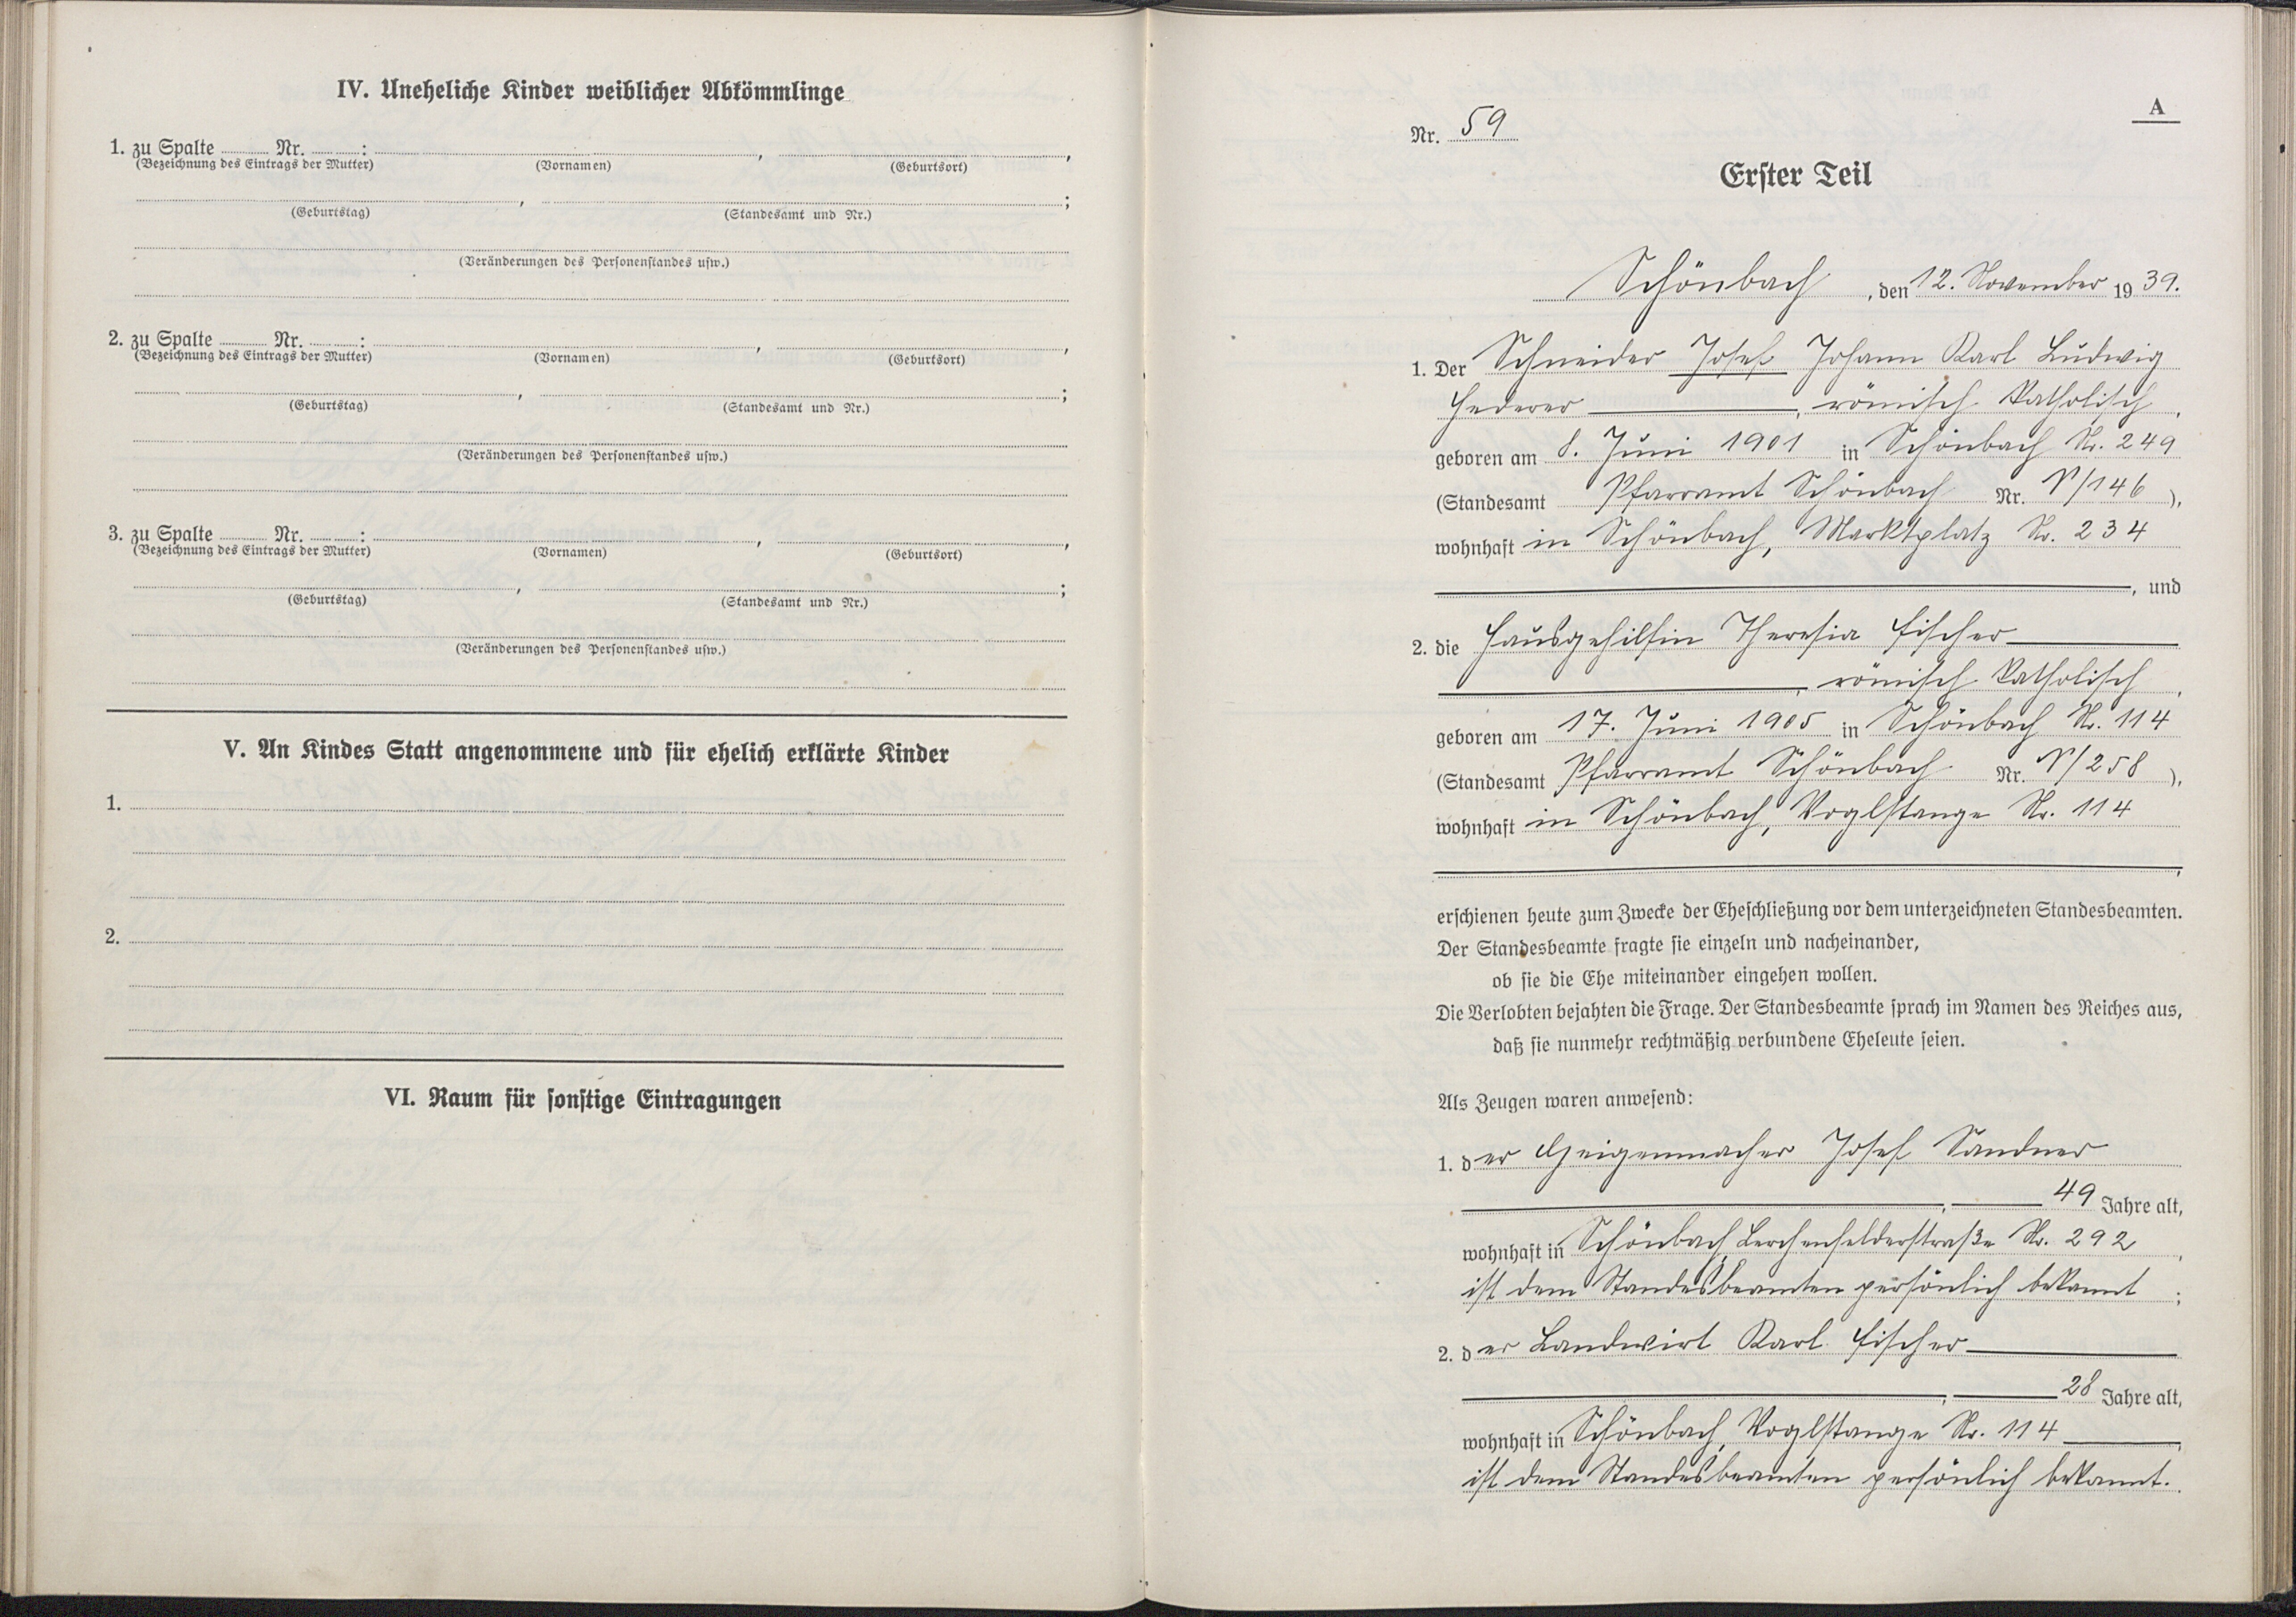 IV. Uneheliche Kinder weiblicher Abkömmlinge
1. zu Spalte ........ Nr. ........: ........, ........,
(Bezeichnung des Eintrags der Mutter) (Vornamen) (Geburtsort)
........, ........;
(Geburtstag) (Standesamt und Nr.)
(Veränderungen des Personenstandes usw.)
2. zu Spalte ........ Nr. ........: ........, ........,
(Bezeichnung des Eintrags der Mutter) (Vornamen) (Geburtsort)
........, ........;
(Geburtstag) (Standesamt und Nr.)
(Veränderungen des Personenstandes usw.)
3. zu Spalte ........ Nr. ........: ........, ........,
(Bezeichnung des Eintrags der Mutter) (Vornamen) (Geburtsort)
........, ........;
(Geburtstag) (Standesamt und Nr.)
(Veränderungen des Personenstandes usw.)
V. An Kindes Statt angenommene und für ehelich erklärte Kinder
1.
2.
VI. Raum für sonstige Eintragungen
A
Nr. 59
Erster Teil
Schönbach, den 12. November 1939.
1. Der Schneider Josef Johann Karl Ludwig
Hederer, römisch katholisch,
geboren am 8. Juni 1901 in Schönbach Nr. 249
(Standesamt Pfarramt Schönbach Nr. V/146),
wohnhaft in Schönbach, Marktplatz Nr. 234
, und
2. die Hausgehilfin Theresia Fischer
, römisch katholisch,
geboren am 17. Juni 1905 in Schönbach Nr. 114
(Standesamt Pfarramt Schönbach Nr. V/258),
wohnhaft in Schönbach, Voglstange Nr. 114
,
erschienen heute zum Zwecke der Eheschließung vor dem unterzeichneten Standesbeamten.
Der Standesbeamte fragte sie einzeln und nacheinander,
ob sie die Ehe miteinander eingehen wollen.
Die Verlobten bejahten die Frage. Der Standesbeamte sprach im Namen des Reiches aus,
daß sie nunmehr rechtmäßig verbundene Eheleute seien.
Als Zeugen waren anwesend:
1. der Geigenmacher Josef Sandner
, 49 Jahre alt,
wohnhaft in Schönbach, Lerchenfelderstraße Nr. 292,
ist dem Standesbeamten persönlich bekannt;
2. der Landwirt Karl Fischer
, 28 Jahre alt,
wohnhaft in Schönbach, Voglstange Nr. 114,
ist dem Standesbeamten persönlich bekannt.